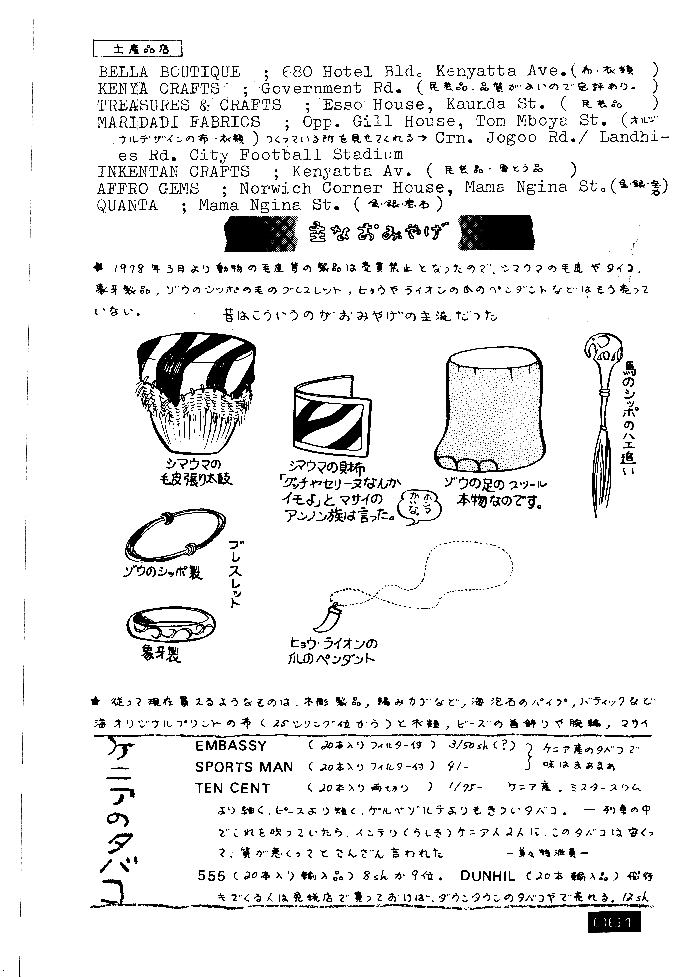 土産品店
BELLA BOUTIQUE ; 680 Hotel Bld. Kenyatta Ave.(布・衣類 )
KENYA CRAFTS ; Government Rd. ( 民芸品・品質がよいので定評あり。 )
TREASURES & CRAFTS ; Esso House, Kaunda St. ( 民芸品 )
MARIDADI FABRICS ; Opp. Gill House, Tom Mboya St. (オリジ
ナルデザインの布・衣類 ) つくっている所を見せてくれる→ Crn. Jogoo Rd./ Landhi-
es Rd. City Football Stadium
INKENTAN CRAFTS ; Kenyatta Av. ( 民芸品・骨とう品 )
AFFRO GEMS ; Norwich Corner House, Mama Ngina St.(金・銀・宝石)
QUANTA ; Mama Ngina St. ( 金・銀・宝石 )
主なおみやげ
1978年3月より動物の毛皮等の製品は売買禁止となったので、シマウマの毛皮やタイコ、
象牙製品、ゾウのシッポの毛のブレスレット、ヒョウやライオンの爪のペンダントなどはもう売って
いない。 昔はこういうのがおみやげの主流だった
シマウマの
毛皮張り太鼓
シマウマの財布
「グッチやセリーヌなんか
イモよ」とマサイの
アンノン族は言った。
ホントかいな
ゾウの足のスツール
本物なのです。
馬のシッポのハエ追い
ゾウのシッポ製
ブレスレット
象牙製
ヒョウ・ライオンの
爪のペンダント
★ 従って現在買えるようなものは、木彫製品、編みカゴなど、海泡石のパイプ、バティックなど
オリジナルプリントの布(25シリング位から)と衣類、ビーズの首飾りや腕輪、マサイ
ケニアのタバコ
EMBASSY (20本入りフィルター付) 3/50sh(?) ケニア産のタバコで
SPORTS MAN (20本入りフィルター付) 4/- 味はまあまあ
TEN CENT (20本入り両切り) 1/75- ケニア産、ミスタースリム
より細く、ピースより短く、ゲルベゾルテよりもきついタバコ。 ー列車の中
でこれを吸っていたら、インテリ(らしき)ケニア人2人に、このタバコは安くっ
て、質が悪くってとさんざん言われた
555 (20本入り輸入品) 8shか9位。 DUNHIL (20本輸入品) 飛行
機でくる人は免税店で買っておけば、ダウンタウンのタバコやで売れる。12sh